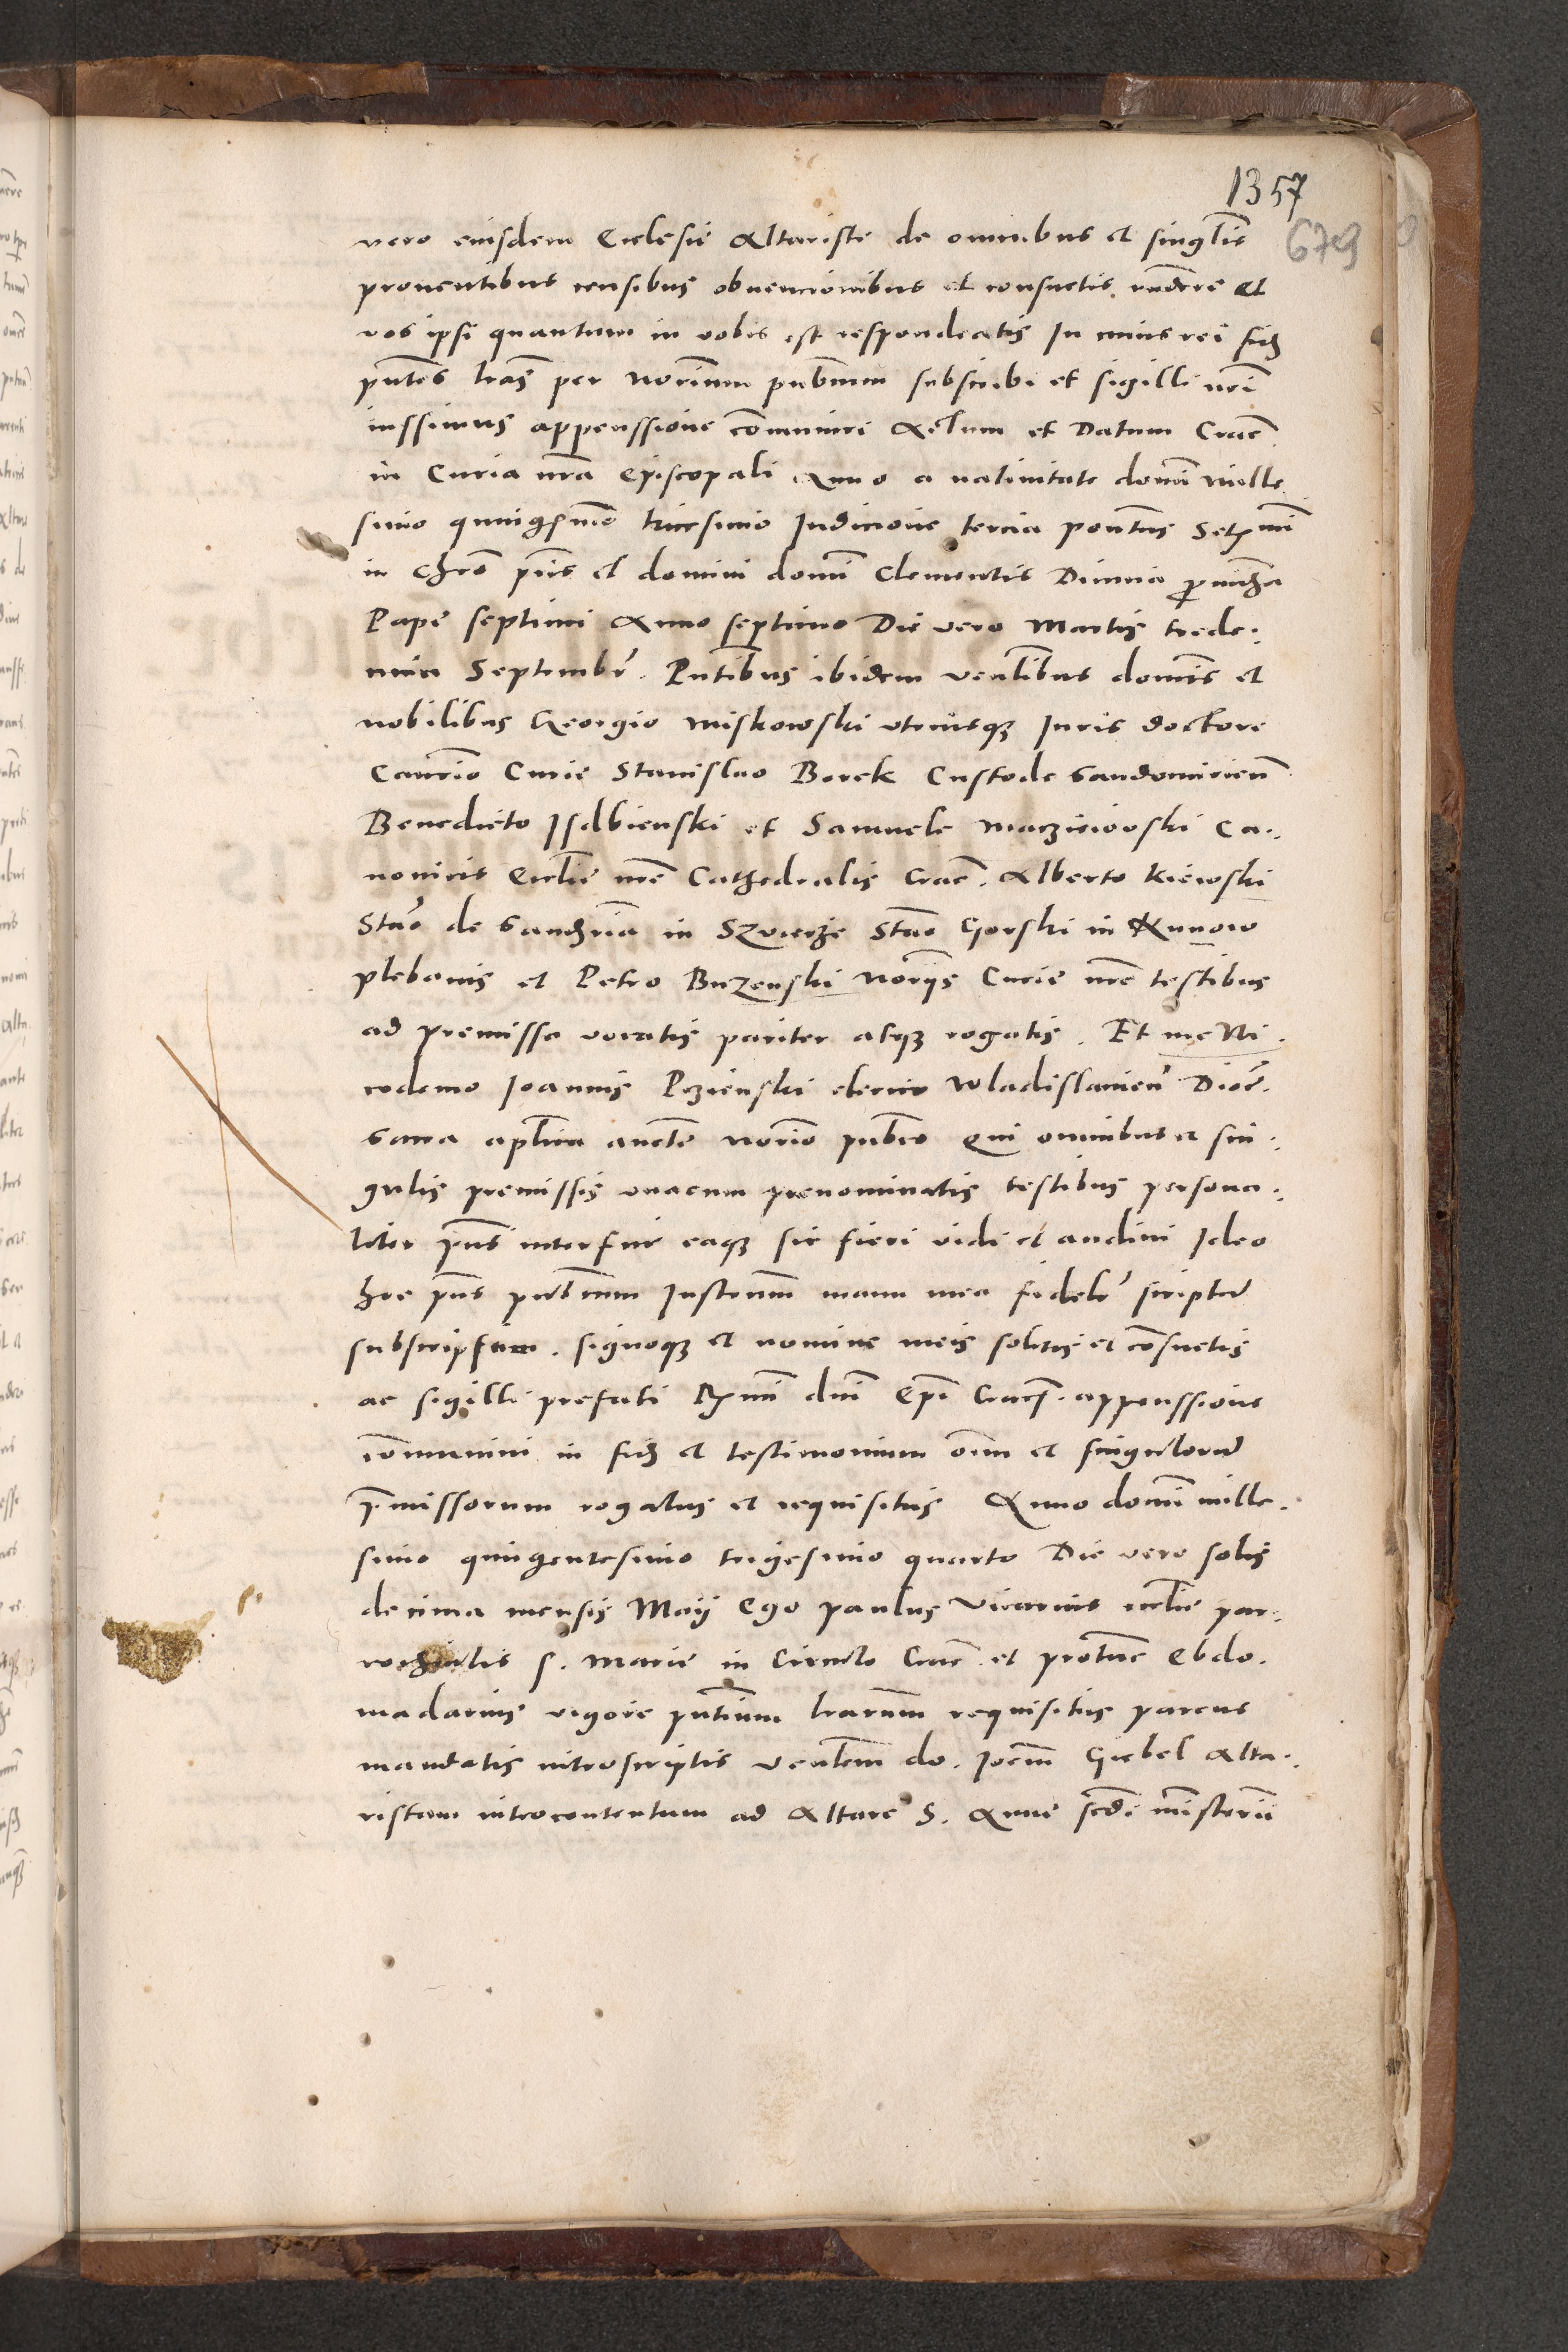 1357
679
vero eiusdem Ecclesie Altariste de omnibus et singlis
proventibus censibus obvencionibus et consuetis rndere et
vos ipsi quantum in vobis est respondeatis In cuius rei fidem
pntes lras per norium pubcum subscribi et sigilli nri
iussimus appenssione comuniri Actum et Datum Crac.
in Curia nra Episcopali Anno a nativitate domi Mille
simo quingsmo tricesimo Indicione tercia pontus Sctmi
in Chro pris et domini domi Clementis Divina providna
Pape septimi Anno septimo Die vero Martis trede.
cima Septembr. Pntibus ibidem venlibus domis et
nobilibus Georgio Miskowski utriusque Juris doctore
Canrio Curie Stanislao Borek Custode Sandomirien
Benedicto Isdbienski et Samuele Macziciovski Ca.
nonicis Ecclie nre Cathedralis Crac. Alberto Kiewski
Stao de in Stao Gorski in Kunow
plebanis et Petro Buzenski noriis Curie nre testibus
ad premissa vocatis pariter atque rogatis. Et me Ni.
codemo Joannis clerico Wladislavien Dioc.
Sacra aplica aucte norio pubco Qui omnibus et sin.
gulis premissis unacum prenominatis testibus persona.
liter pns interfui eaque sic fieri vidi et audivi Ideo
hoc pns pubcum Instrum manu mea fidelr scriptu
subscripsi . signoque et nomine meis solitis et cosuetis
ac sigilli prefati Rmi dni Epi Crac. appenssione
comunivi in fidem et testimonium oim et singuloru
premissorum rogatus et requisitus Anno domi mille.
simo quingentesimo trigesimo quarto Die vero solis
decima mensis Maij Ego paulus Vicarius ecclie par.
rochialis S. Marie in Circulo Crac. et protunc Ebdo.
madarius vigore pntium lrarum requisitus parens
mandatis introscriptis venlem do. Joem Giebel Alta.
ristam introcontentum ad Altare S. Anne scdi misterii